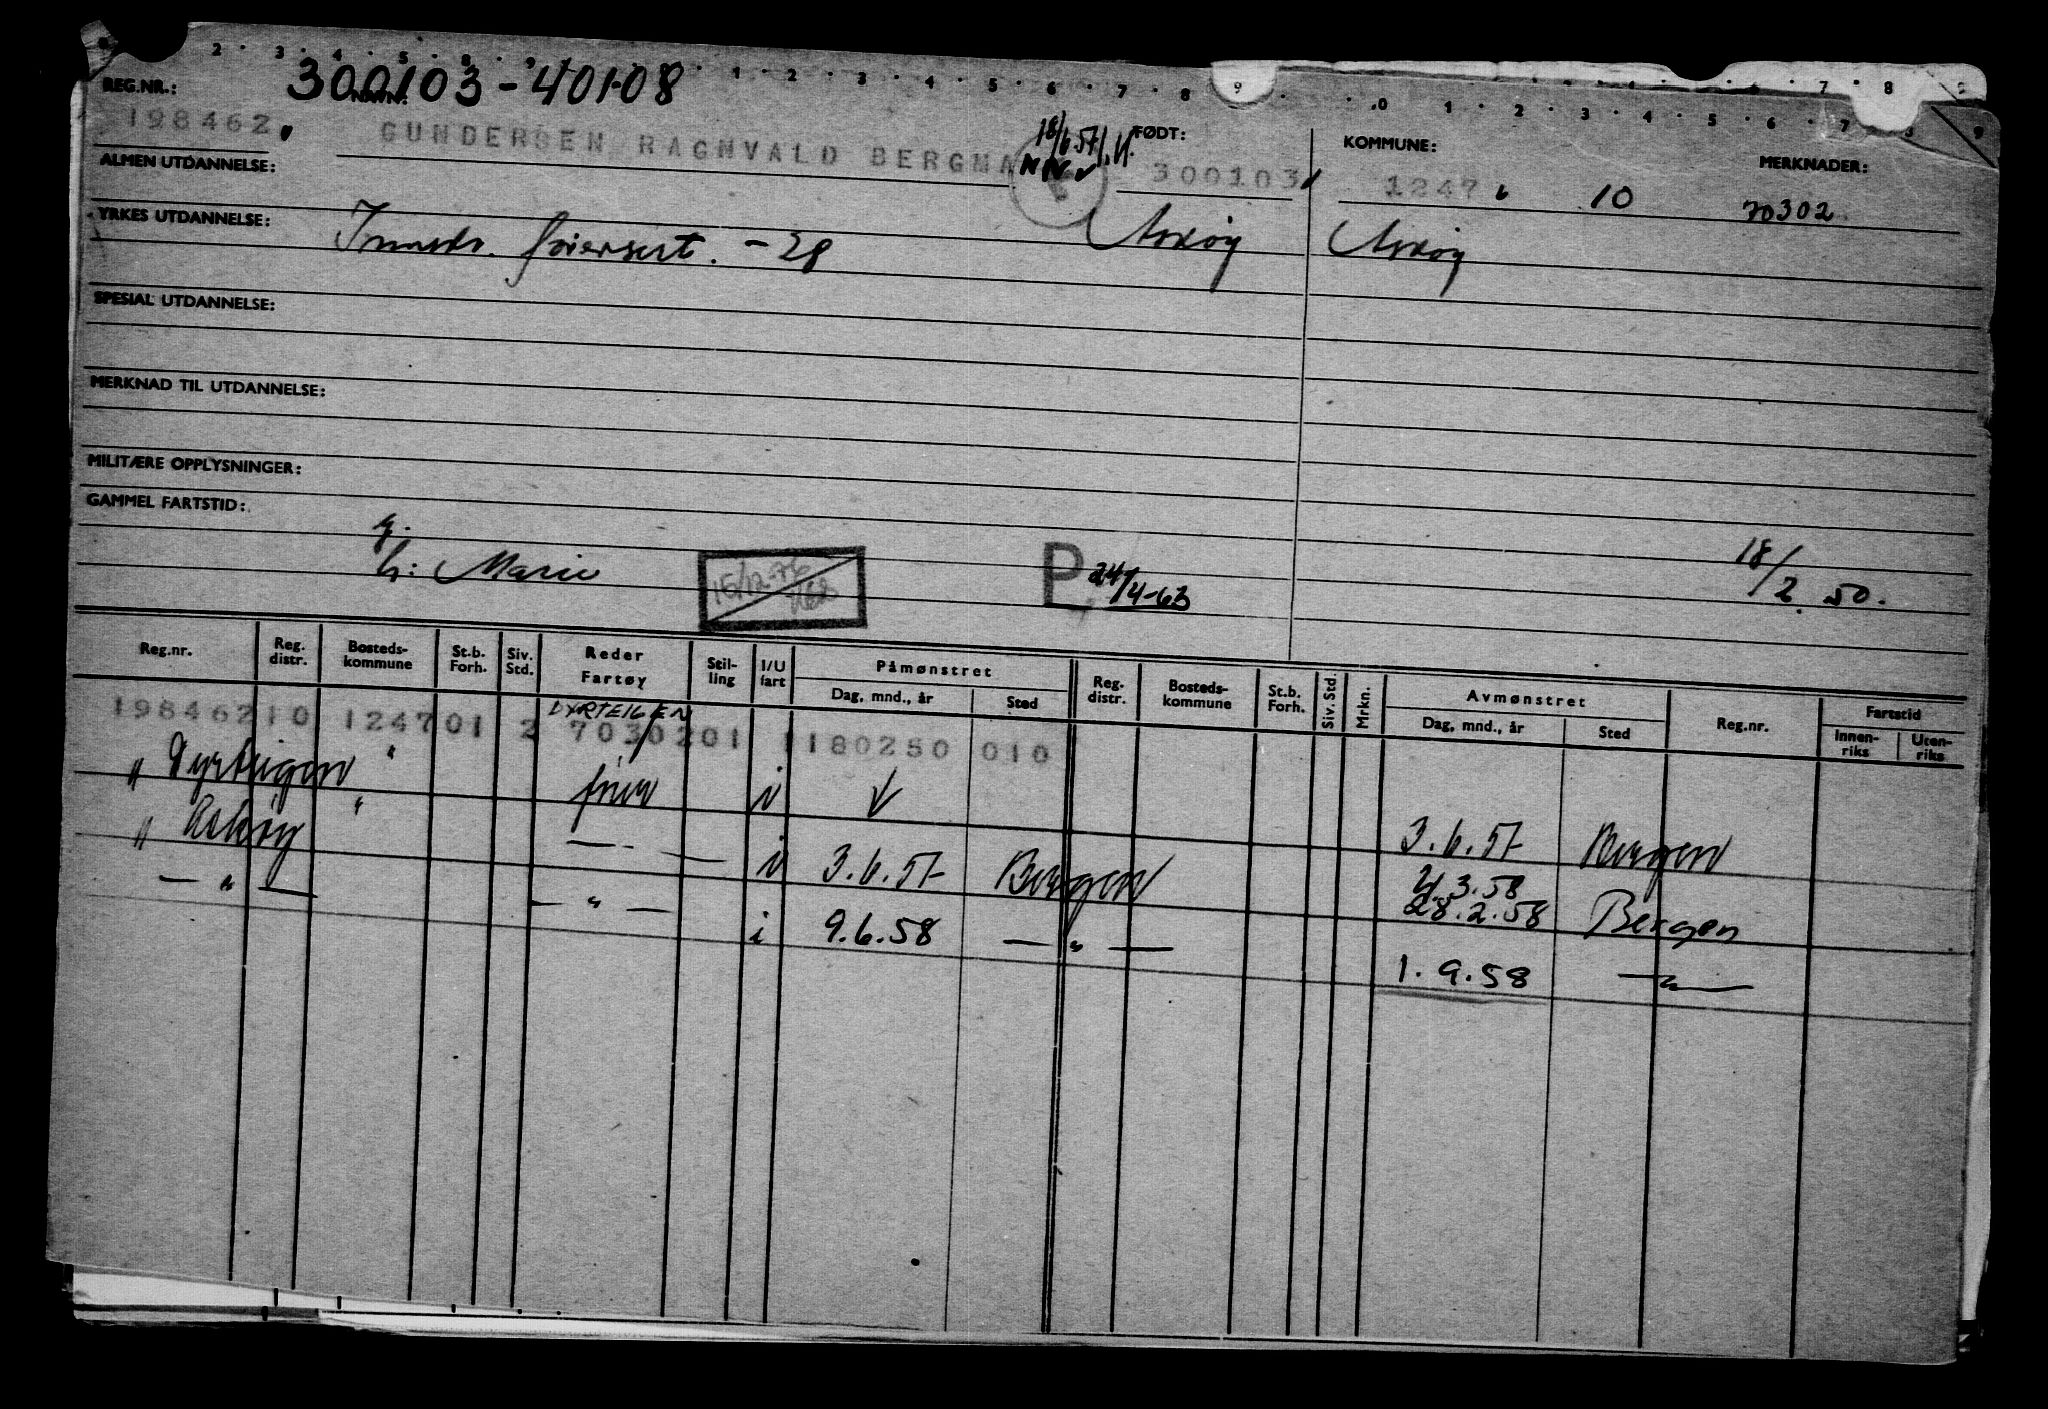 REG.NR.: 300103-40108
NAVN:
198462 GUNDERSEN RAGNVALD BERGMA 18/6.57 FØDT: 300103 KOMMUNE: 1247 10 MERKNADER: 70302
ALMEN UTDANNELSE:
YRKES UTDANNELSE: -28 Askøy Askøy
SPESIAL UTDANNELSE:
MERKNAD TIL UTDANNELSE:
MILITÆRE OPPLYSNINGER:
GAMMEL FARTSTID:
g.
h: Marie 15/12-76 P. 24/4-63 18/2.50.
Reg.nr. Reg. distr. Bosteds-kommune St.b. Forh. Siv. Std. Reder Fartøy Stil-ling I/U fart Påmønstret Dag, mnd., år Sted Reg. distr. Bosteds-kommune St.b. Forh. Siv. Std. Mrkn. Avmønstret Dag, mnd., år Sted Reg.nr. Fartstid Innen-riks Uten-riks
DYRTEIGEN
198462 10 1247 01 2 7030201 1 180250 010
" Dyrteigen " i 3.6.57 Bergen
" Askøy " — - — i 3.6.57 Bergen 4.3.58
28.2.58 Bergen
— " — — " — i 9.6.58 — " — 1.9.58 — " —